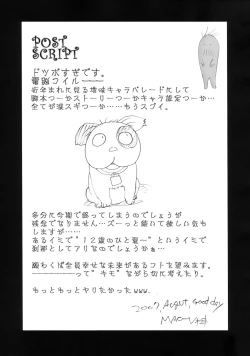 POST
SCRIPT
ドツボすぎです。
電脳コイル―――
近年まれに見る地味キャラパレードにして
脚本つーかストーリーつーかキャラ設定つーか…
全てが凄スギつーか……もうスゴイ。
多分に今期で終ってしまうのでしょうが
残念でなりません…ズーっと続いて欲しい気も
しますが……
あるイミで"12歳のひと夏~"というイミで
刹那としてアリなのでしょうかぁ…
願わくば全員幸せな未来があるコトを望みます。
―――って"キモ"ながら切に考えたり。
もっともっとヤリたかったwww
2007, August, Good day